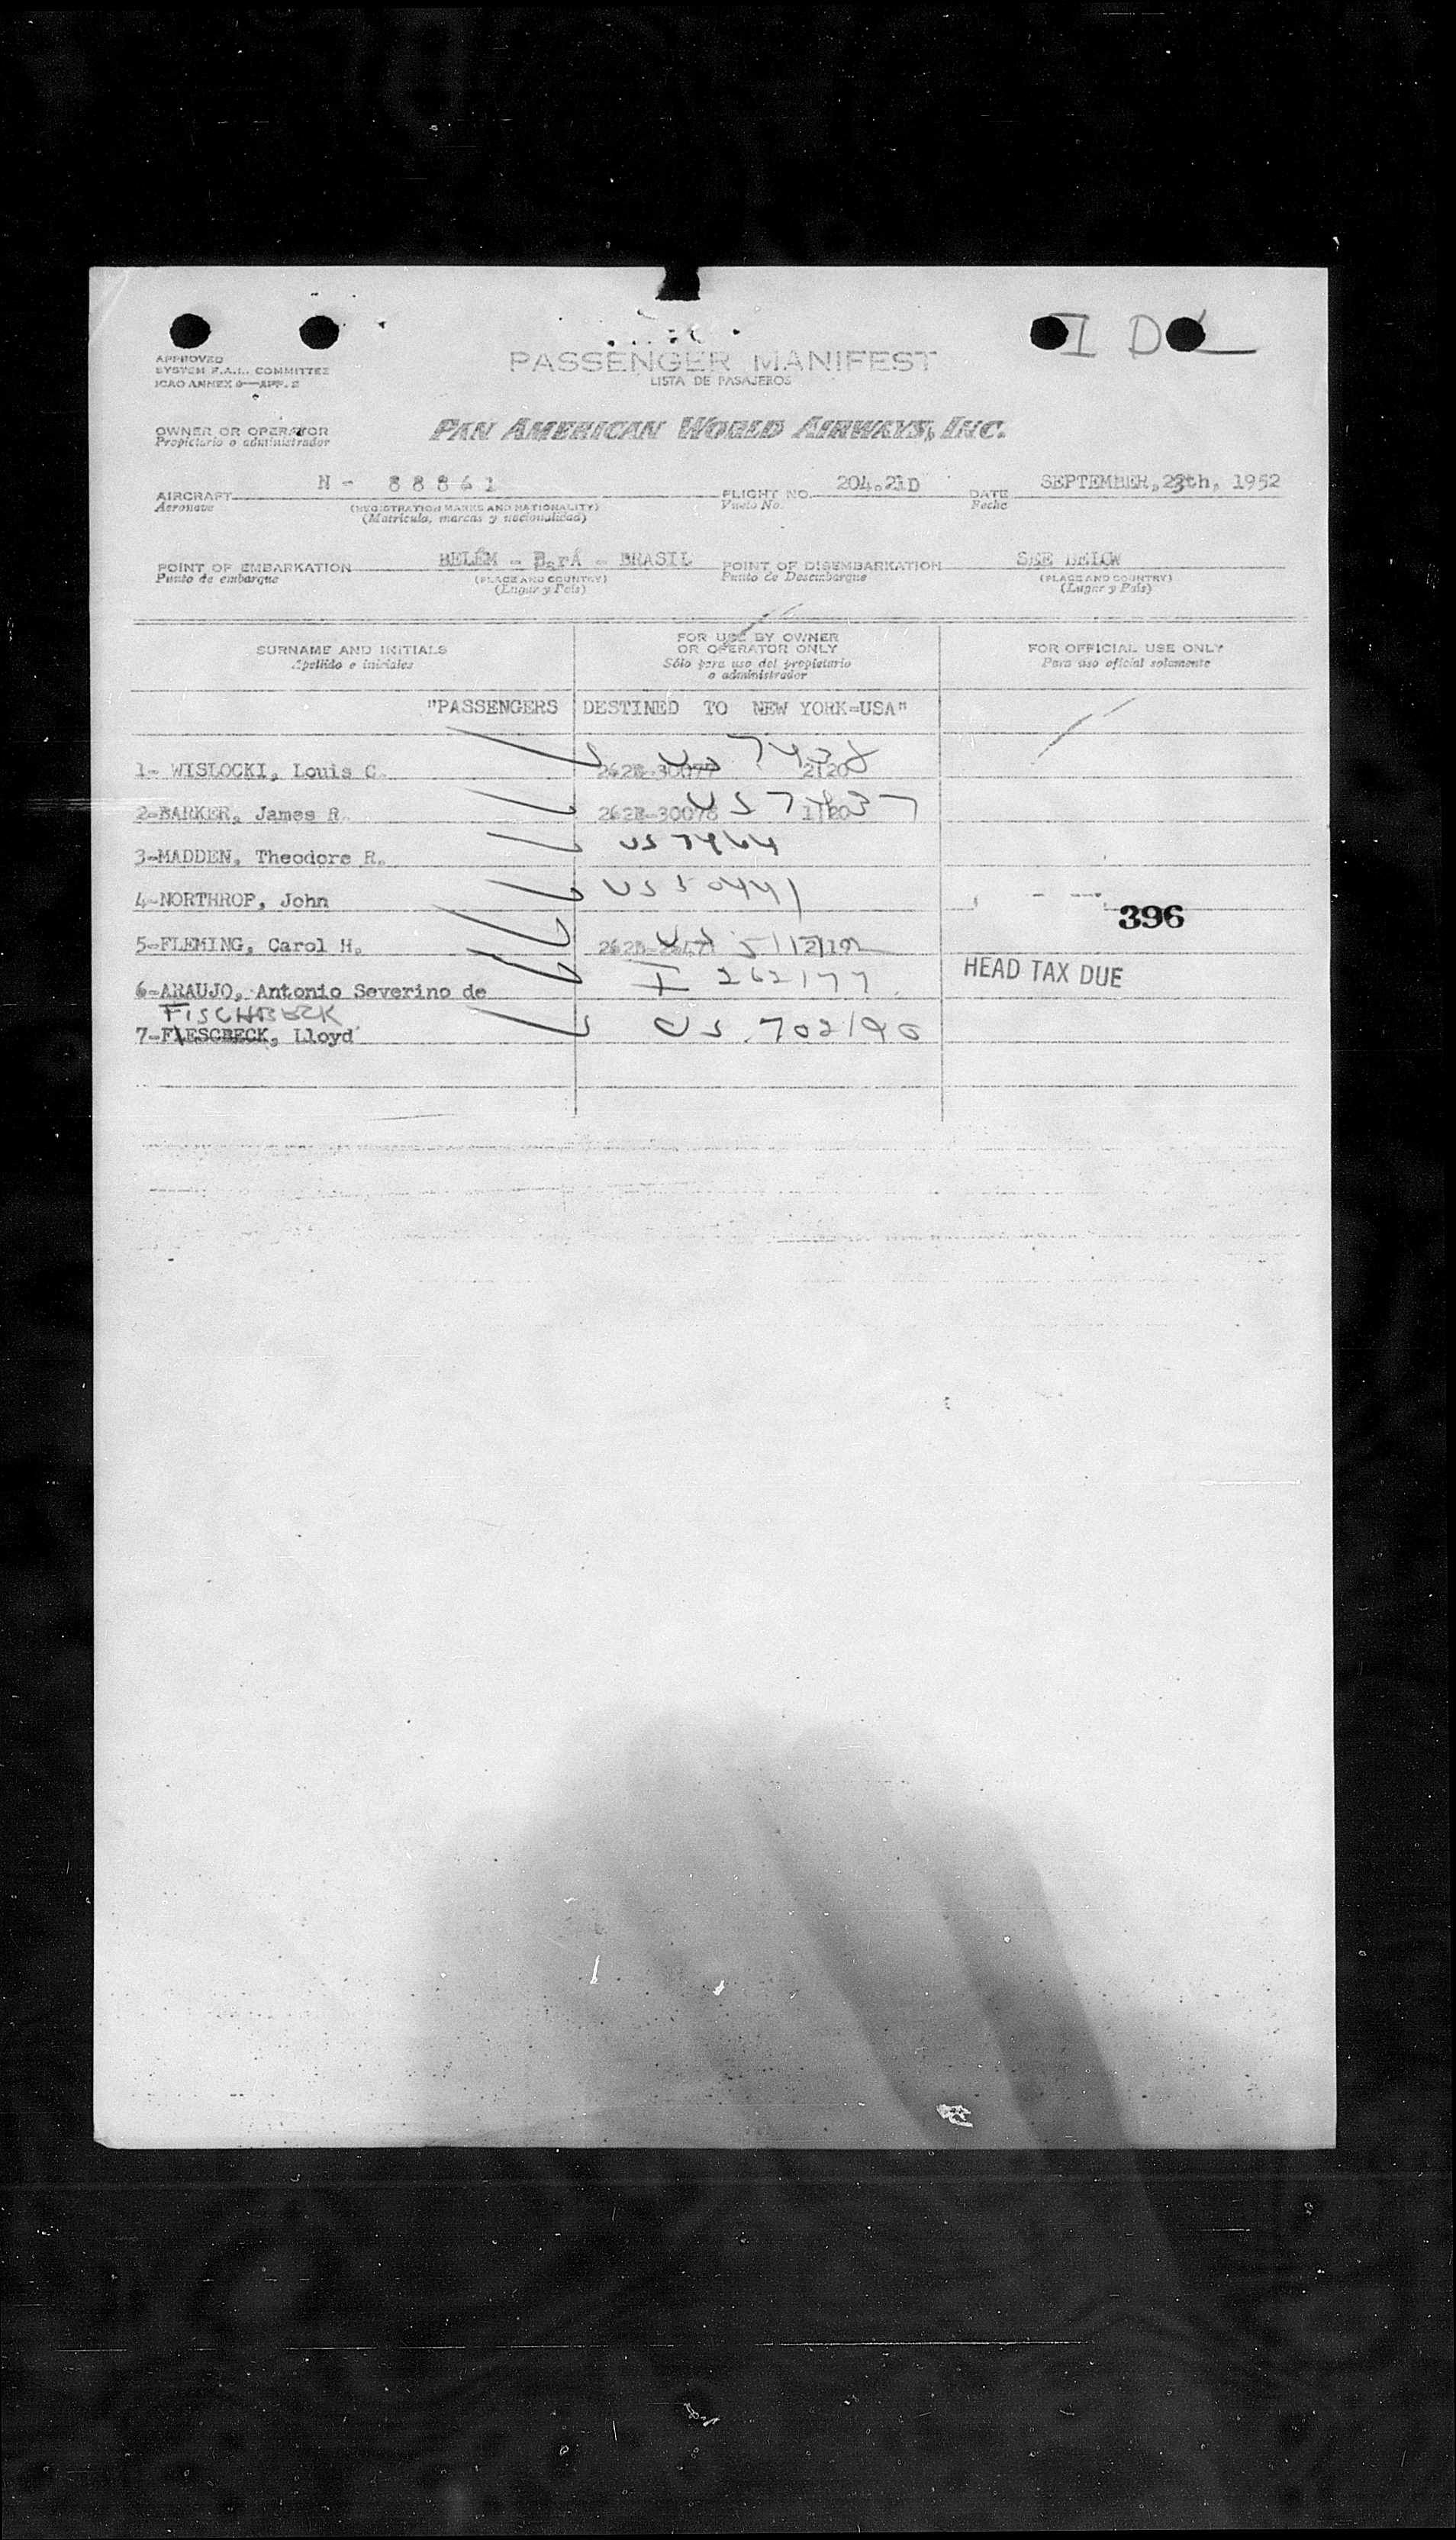 I D L
APPROVED
SYSTEM F.A.L. COMMITTEE
ICAO ANNEX 9—APP. 2
PASSENGER MANIFEST
LISTA DE PASAJEROS
OWNER OR OPERATOR
Propietario o administrador
PAN AMERICAN WORLD AIRWAYS, INC.
AIRCRAFT N - 88861 FLIGHT NO. 204.21D DATE SEPTEMBER, 23th, 1952
Aeronave (REGISTRATION MARKS AND NATIONALITY) Vuelo No. Fecha
(Matrícula, marcas y nacionalidad)
POINT OF EMBARKATION BELÉM - PARÁ - BRASIL POINT OF DISEMBARKATION SEE BELOW
Punto de embarque (PLACE AND COUNTRY) Punto de Desembarque (PLACE AND COUNTRY)
(Lugar y País) (Lugar y País)
SURNAME AND INITIALS
Apellido e iniciales
FOR USE BY OWNER
OR OPERATOR ONLY
Sólo para uso del propietario
o administrador
FOR OFFICIAL USE ONLY
Para uso oficial solamente
"PASSENGERS DESTINED TO NEW YORK-USA"
1- WISLOCKI, Louis C. US
2-BARKER, James R. US
3-MADDEN, Theodore R. US 7464
4-NORTHROP, John US 50441
396
5-FLEMING, Carol H. US
HEAD TAX DUE
6-ARAUJO, Antonio Severino de I 262177
FISCHBECK
7-FLESCBECK, Lloyd US 702190